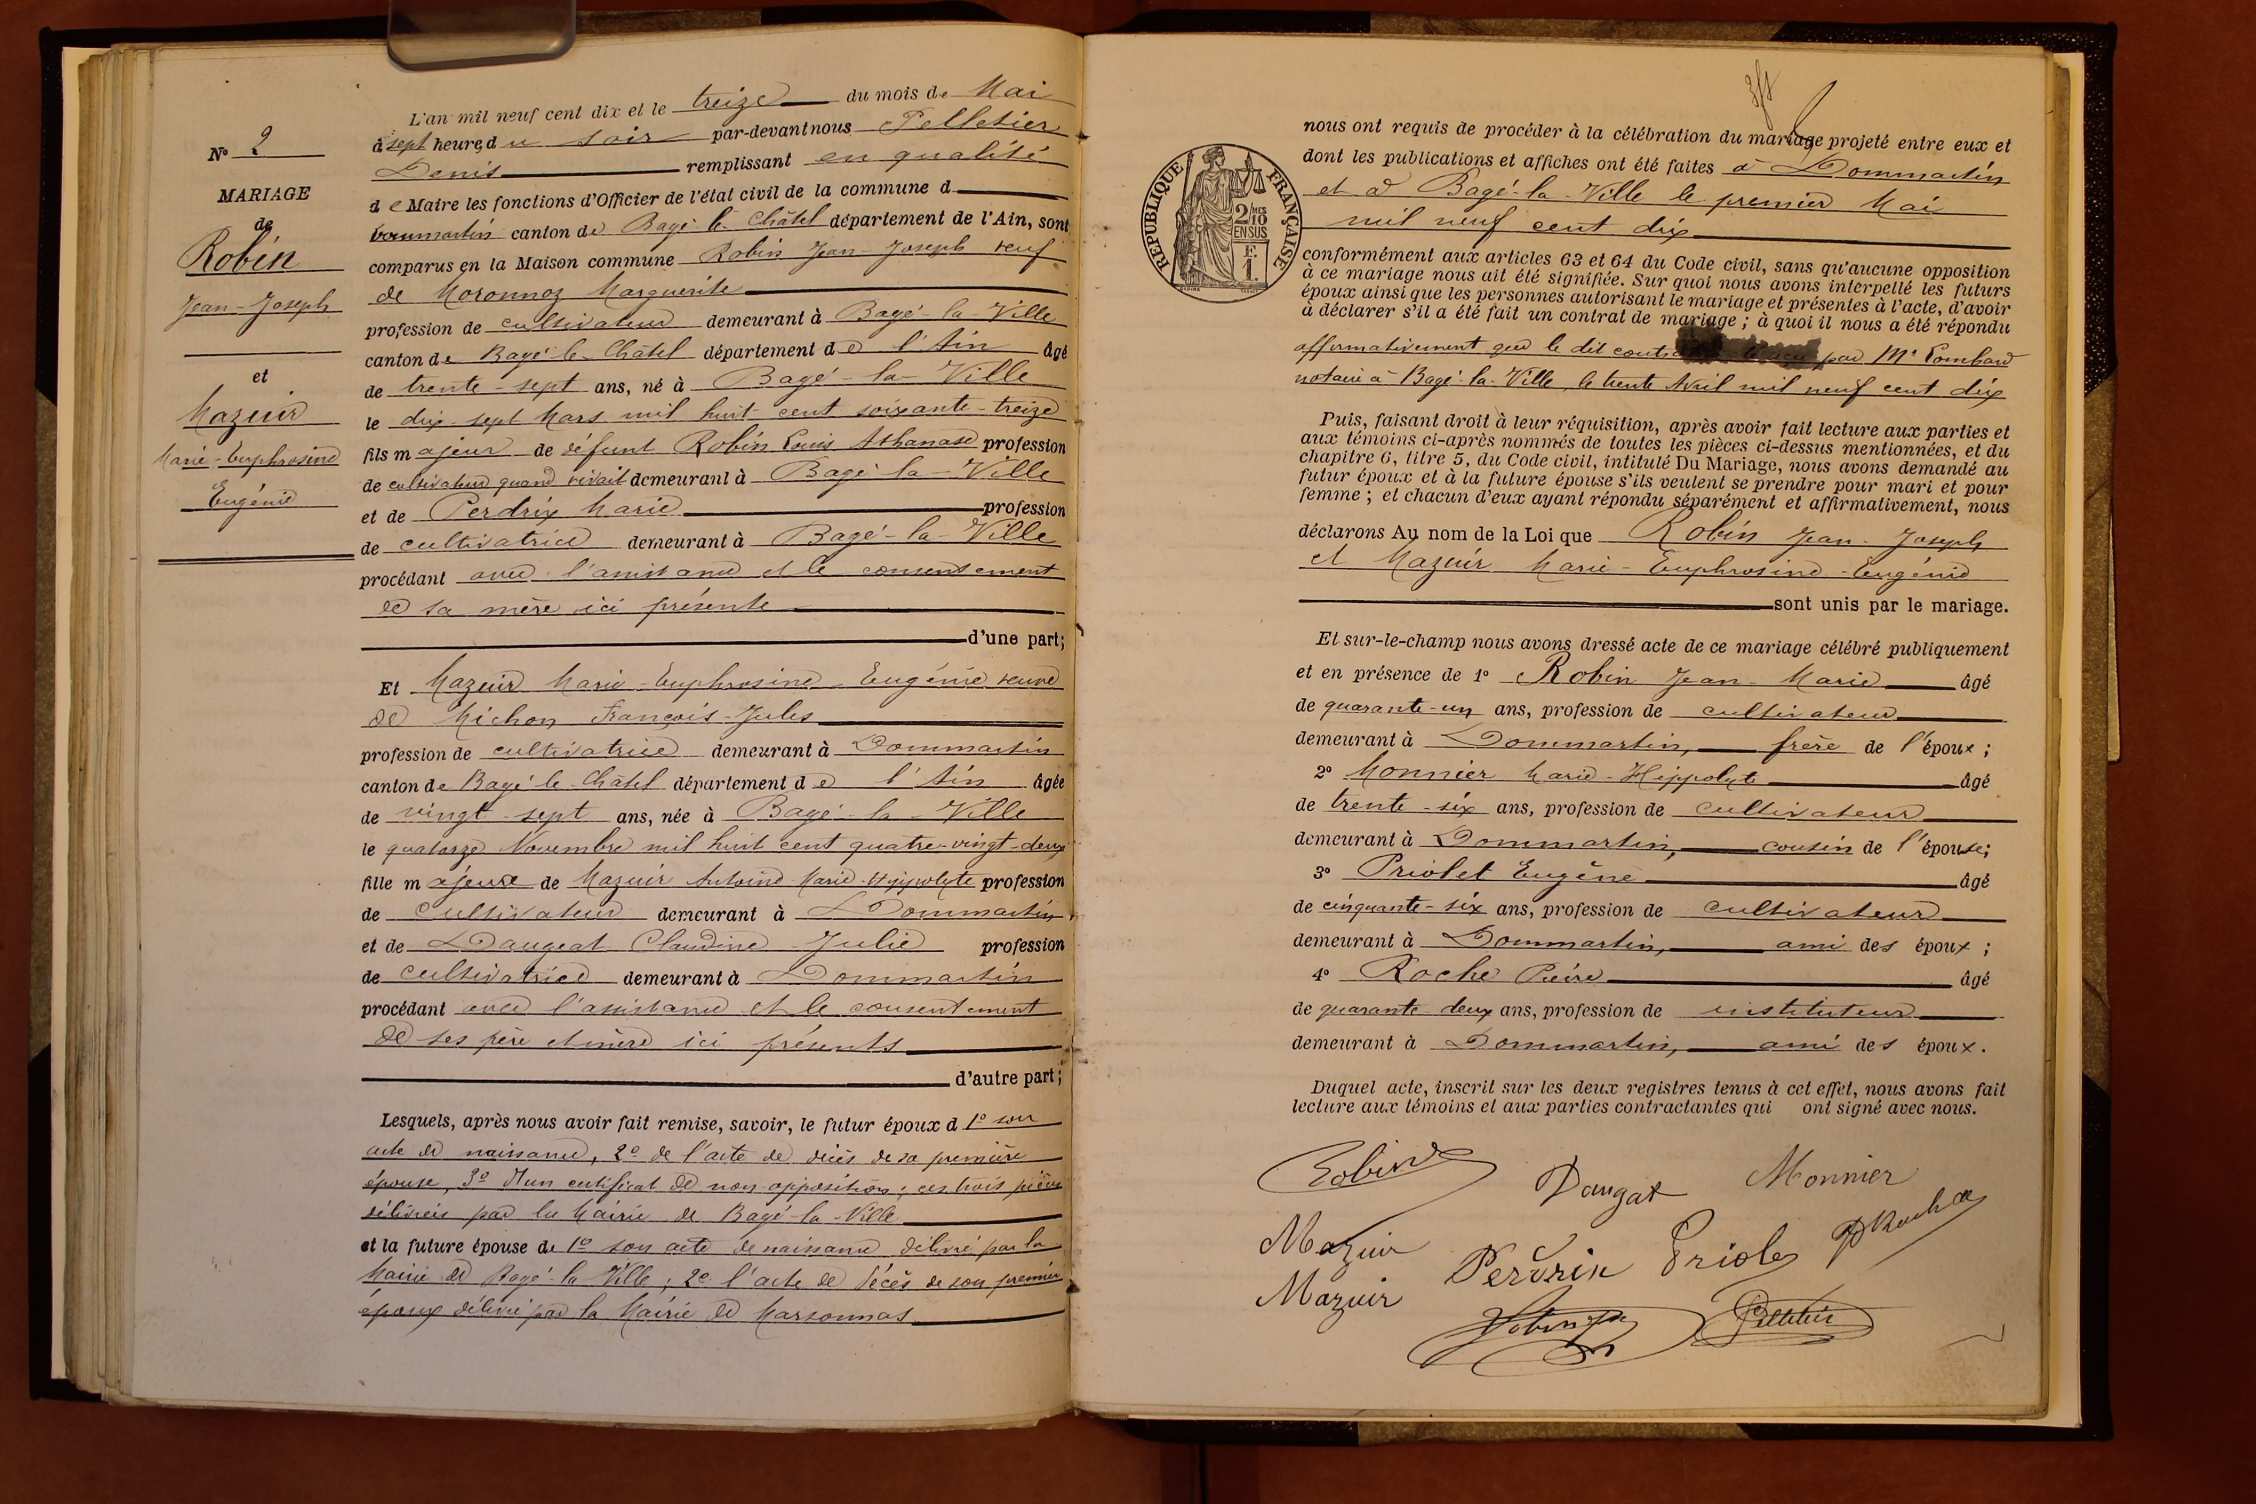 N° 2
MARIAGE
de
Robin
Jean-Joseph
et
Mazuir
Marie-Euphrosine
Eugénie
L'an mil neuf cent dix et le treize du mois de Mai
à sept heures du soir par-devant nous Pelletier
Denis remplissant en qualité
de Maire les fonctions d'Officier de l'état civil de la commune d
Dommartin canton de Bagé-le-Châtel département de l'Ain, sont
comparus en la Maison commune Robin Jean-Joseph veuf
de Moronnoz Marguerite
profession de cultivateur demeurant à Bagé-la-Ville
canton de Bagé-le-Châtel département de l'Ain âgé
de trente-sept ans, né à Bagé-la-Ville
le dix-sept Mars mil huit cent soixante-treize
fils majeur de défunt Robin Louis Athanase profession
de cultivateur quand vivait demeurant à Bagé-la-Ville
et de Perdrix Marie profession
de cultivatrice demeurant à Bagé-la-Ville
procédant avec l'assistance et le consentement
de sa mère ici présente
d'une part;
Et Mazuir Marie-Euphrosine-Eugénie veuve
de Michon François-Jules
profession de cultivatrice demeurant à Dommartin
canton de Bagé-le-Châtel département de l'Ain âgée
de vingt-sept ans, née à Bagé-la-Ville
le quatorze Novembre mil huit cent quatre-vingt-deux
fille majeure de Mazuir Antoine-Marie-Hyppolyte profession
de cultivateur demeurant à Dommartin
et de Daugeat Claudine Julie profession
de cultivatrice demeurant à Dommartin
procédant avec l'assistance et le consentement
de ses père et mère ici présents
d'autre part;
Lesquels, après nous avoir fait remise, savoir, le futur époux d 1° son
acte de naissance, 2° de l'acte de décès de sa première
épouse, 3° d'un certificat de non-opposition; ces trois pièces
délivrées par la Mairie de Bagé-la-Ville
et la future épouse de 1° son acte de naissance délivré par la
Mairie de Bagé-la-Ville; 2° l'acte de décès de son premier
époux délivré par la Mairie de Marsonnas
RÉPUBLIQUE FRANÇAISE
2/10 MES
EN SUS
F.
1.
nous ont requis de procéder à la célébration du mariage projeté entre eux et
dont les publications et affiches ont été faites à Dommartin
et à Bagé-la-Ville le premier Mai
mil neuf cent dix
conformément aux articles 63 et 64 du Code civil, sans qu'aucune opposition
à ce mariage nous ait été signifiée. Sur quoi nous avons interpellé les futurs
époux ainsi que les personnes autorisant le mariage et présentes à l'acte, d'avoir
à déclarer s'il a été fait un contrat de mariage; à quoi il nous a été répondu
affirmativement que le dit par Me Lombard
notaire à Bagé-la-Ville, le trente Avril mil neuf cent dix
Puis, faisant droit à leur réquisition, après avoir fait lecture aux parties et
aux témoins ci-après nommés de toutes les pièces ci-dessus mentionnées, et du
chapitre 6, titre 5, du Code civil, intitulé Du Mariage, nous avons demandé au
futur époux et à la future épouse s'ils veulent se prendre pour mari et pour
femme; et chacun d'eux ayant répondu séparément et affirmativement, nous
déclarons Au nom de la Loi que Robin Jean-Joseph
et Mazuir Marie-Euphrosine-Eugénie
sont unis par le mariage.
Et sur-le-champ nous avons dressé acte de ce mariage célébré publiquement
et en présence de 1° Robin Jean-Marie âgé
de quarante-un ans, profession de cultivateur
demeurant à Dommartin, frère de l'époux;
2° Monnier Marie-Hippolyte âgé
de trente-six ans, profession de cultivateur
demeurant à Dommartin, cousin de l'épouse;
3° Priolet Eugène âgé
de cinquante-six ans, profession de cultivateur
demeurant à Dommartin, ami des époux;
4° Roche Pierre âgé
de quarante-deux ans, profession de instituteur
demeurant à Dommartin, ami des époux.
Duquel acte, inscrit sur les deux registres tenus à cet effet, nous avons fait
lecture aux témoins et aux parties contractantes qui ont signé avec nous.
Robin
Daugat
Monnier
Mazuir
Perdrix
Priolet
P Roche
Mazuir
Robin
Pelletier